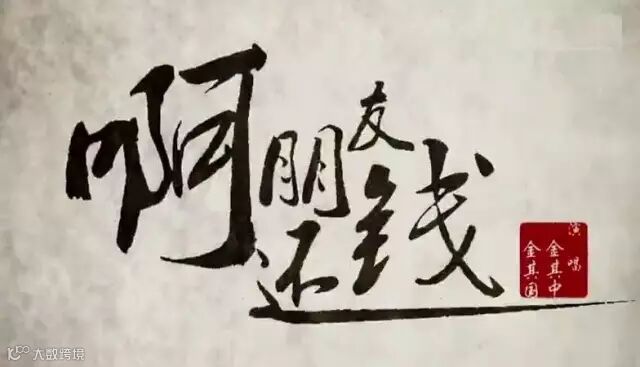 啊朋友
还钱
演唱
金其中
金其国
大数跨境